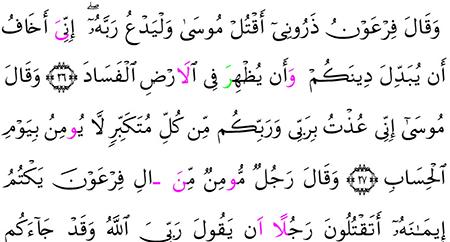 وَقَالَ فِرْعَوْنُ ذَرُونِىٓ أَقْتُلْ مُوسَىٰ وَلْيَدْعُ رَبَّهُۥٓۖ إِنِّىَ أَخَافُ
أَن يُبَدِّلَ دِينَكُمْ وَأَن يُظْهِرَ فِى ٱلَارْضِ ٱلْفَسَادَ ٢٦ وَقَالَ
مُوسَىٰٓ إِنِّى عُذْتُ بِرَبِّى وَرَبِّكُم مِّن كُلِّ مُتَكَبِّرٍ لَّا يُومِنُ بِيَوْمِ
ٱلْحِسَابِ ٢٧ وَقَالَ رَجُلٌ مُّومِنٌ مِّنَ ـَالِ فِرْعَوْنَ يَكْتُمُ
إِيمَـٰنَهُۥٓ أَتَقْتُلُونَ رَجُلًا اَن يَقُولَ رَبِّىَ ٱللَّهُ وَقَدْ جَآءَكُم